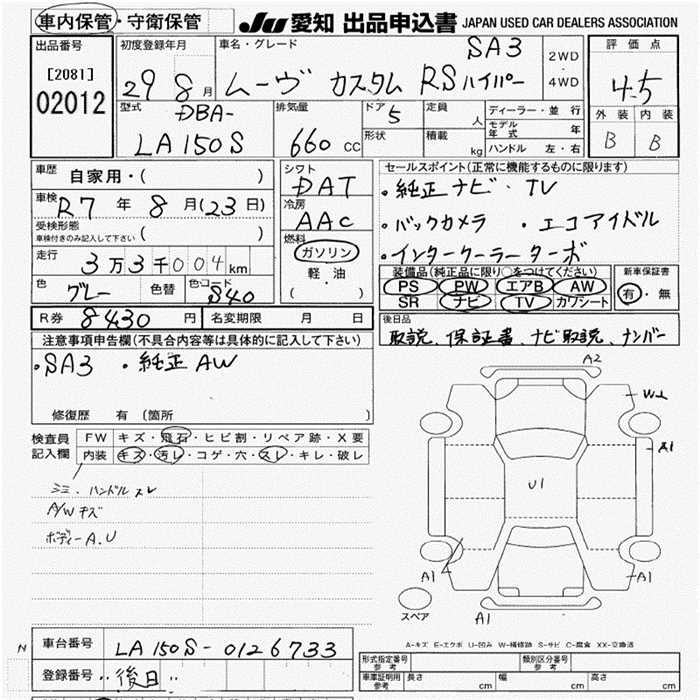 車内保管・守衛保管
JU 愛知 出品申込書 JAPAN USED CAR DEALERS ASSOCIATION
出品番号
[2081]
02012
初度登録年月
29 8月
車名・グレード
SA3
ムーヴ カスタム RSハイパー
2WD
4WD
評価点
4.5
外装 内装
B B
型式
DBA-
LA150S
排気量
660 CC
ドア
5
形状
定員
人
積載
kg
ディーラー・並行
モデル年式 年
ハンドル 左・右
車歴
自家用・( )
車検
R7年8月(23日)
受検形態
車検付きのみ記入して下さい ( )
走行
3万3千004km
色
グレー
色替
色コード
S40
シフト
DAT
冷房
AAC
燃料
ガソリン
軽・油
( )
セールスポイント(正常に機能するものに限ります)
・純正ナビ・TV
・バックカメラ ・エコアイドル
・インタークーラーターボ
装備品(純正品に限り○をつけてください)
PS PW エアB AW
SR ナビ TV カワシート
新車保証書
有・無
R券 8430円
名変期限 月 日
後日品
取説、保証書、ナビ取説、ナンバー
注意事項申告欄(不具合内容等は具体的に記入して下さい)
・SA3 ・純正AW
修復歴 有(箇所 )
検査員記入欄
FW キズ・飛石・ヒビ割・リペア跡・X要
内装 キズ・汚レ・コゲ・穴・スレ・キレ・破レ
ミミ・ハンドルスレ
A/Wキズ
ボディーA.U
A2
A1
U1
A1
A1
A1
スペア
A-キズ E-エクボ U-凹み W-補修跡 S-サビ C-腐食 XX-交換済
N
車台番号
LA150S-0126733
登録番号
"後日"
形式指定番号
参考
類別区分番号
参考
車庫証明用
参考
長さ cm
幅 cm
高さ cm